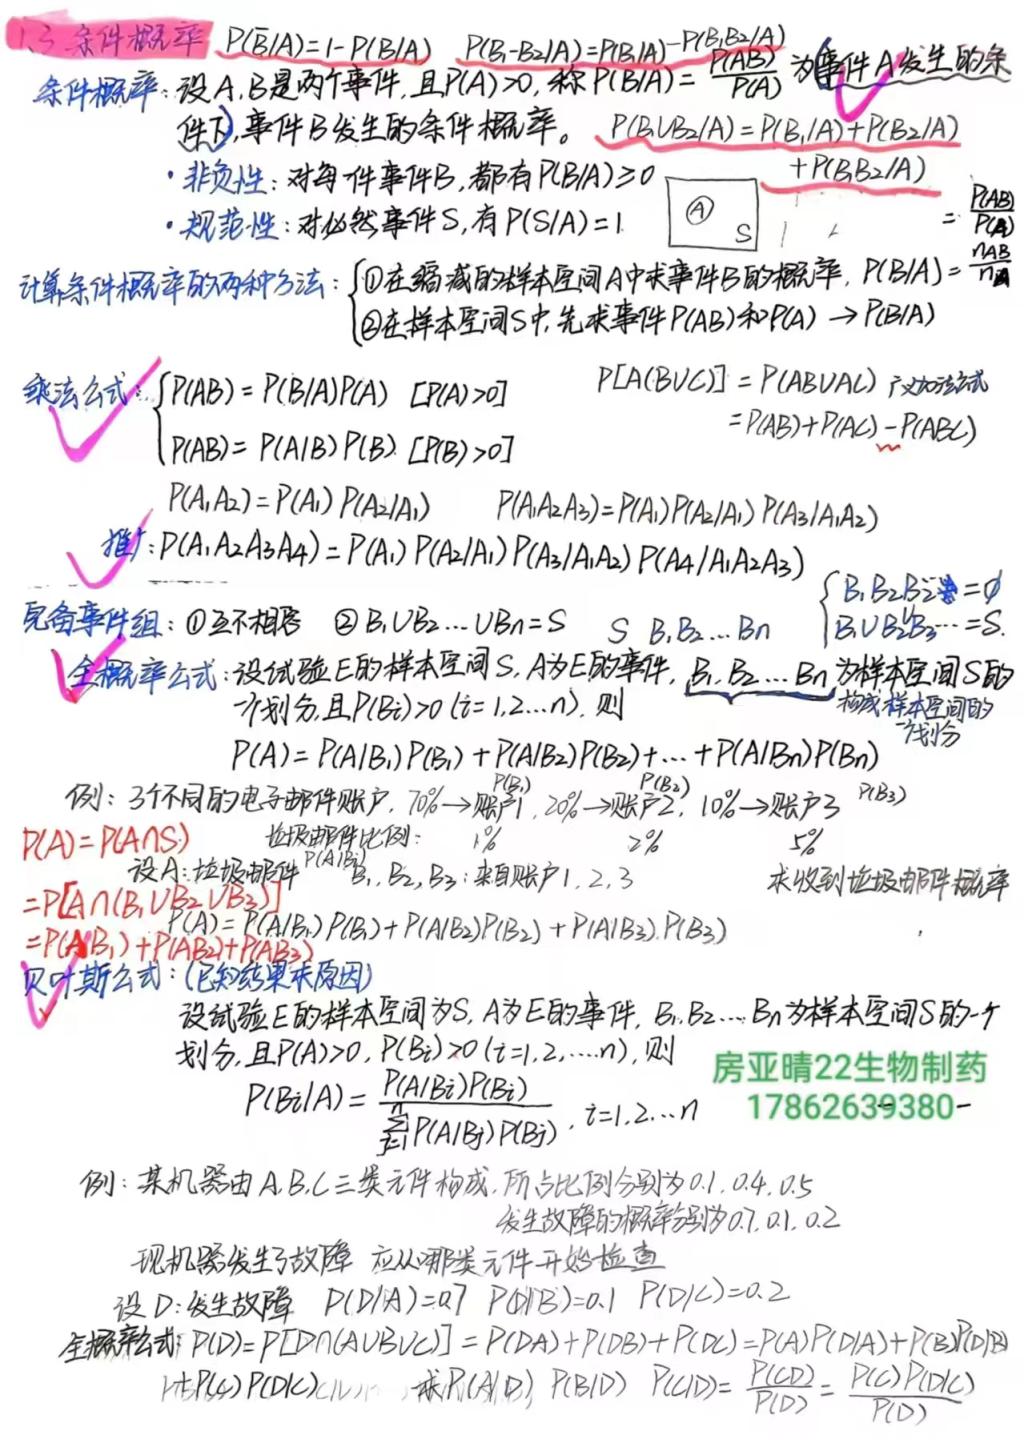 1.3 条件概率 P(B̅/A)=1-P(B/A) P(B₁-B₂/A)=P(B₁/A)-P(B₁B₂/A)
条件概率:设A,B是两个事件,且P(A)>0,称P(B/A)=P(AB)/P(A) 为(事件A发生的条
件下),事件B发生的条件概率。 P(B₁∪B₂/A)=P(B₁/A)+P(B₂/A)
+P(B₁B₂/A)
·非负性:对每一件事件B,都有P(B/A)≥0
·规范性:对必然事件S,有P(S/A)=1
A S
=P(AB)/P(A)
计算条件概率的两种方法:①在缩减的样本空间A中求事件B的概率,P(B/A)=nAB/nA
②在样本空间S中,先求事件P(AB)和P(A)→P(B/A)
乘法公式:P(AB)=P(B/A)P(A) [P(A)>0] P[A(B∪C)]=P(AB∪AC) 广义加法公式
=P(AB)+P(AC)-P(ABC)
P(AB)=P(A/B)P(B) [P(B)>0]
P(A₁A₂)=P(A₁)P(A₂/A₁) P(A₁A₂A₃)=P(A₁)P(A₂/A₁)P(A₃/A₁A₂)
推广:P(A₁A₂A₃A₄)=P(A₁)P(A₂/A₁)P(A₃/A₁A₂)P(A₄/A₁A₂A₃)
B₁B₂B₂…=∅
完备事件组:①互不相容 ②B₁∪B₂…∪Bn=S S B₁B₂…Bn B₁∪B₂B₃…=S.
全概率公式:设试验E的样本空间S,A为E的事件,B₁,B₂…Bn为样本空间S的
一个划分,且P(Bi)>0(i=1,2…n),则 构成样本空间的
一个划分
P(A)=P(A/B₁)P(B₁)+P(A/B₂)P(B₂)+…+P(A/Bn)P(Bn)
P(B₁) P(B₂) P(B₃)
例:3个不同的电子邮件账户,70%→账户1,20%→账户2,10%→账户3
P(A)=P(A∩S) 垃圾邮件比例: 1% 2% 5%
P(A/Bi)
设A:垃圾邮件 B₁,B₂,B₃:来自账户1,2,3 求收到垃圾邮件概率
=P[A∩(B₁∪B₂∪B₃)]
P(A)=P(A/B₁)P(B₁)+P(A/B₂)P(B₂)+P(A/B₃).P(B₃)
=P(AB₁)+P(AB₂)+P(AB₃)
贝叶斯公式:(已知结果求原因)
设试验E的样本空间为S,A为E的事件,B₁.B₂…Bn为样本空间S的一个
划分,且P(A)>0,P(Bi)>0(i=1,2,…..n),则
房亚晴22生物制药
17862639380-
P(Bi/A)=P(A/Bi)P(Bi)/∑ⁿj=1 P(A/Bj)P(Bj),i=1,2…n
例:某机器由A.B.C三类元件构成,所占比例分别为0.1,0.4,0.5
发生故障的概率分别为0.7,0.1,0.2
现机器发生了故障 应从哪类元件开始检查
设D:发生故障 P(D/A)=0.7 P(D/B)=0.1 P(D/C)=0.2
全概率公式:P(D)=P[D∩(A∪B∪C)]=P(DA)+P(DB)+P(DC)=P(A)P(D/A)+P(B)P(D/B)
+P(C)P(D/C) 求P(A/D) P(B/D) P(C/D)=P(CD)/P(D)=P(C)P(D/C)/P(D)